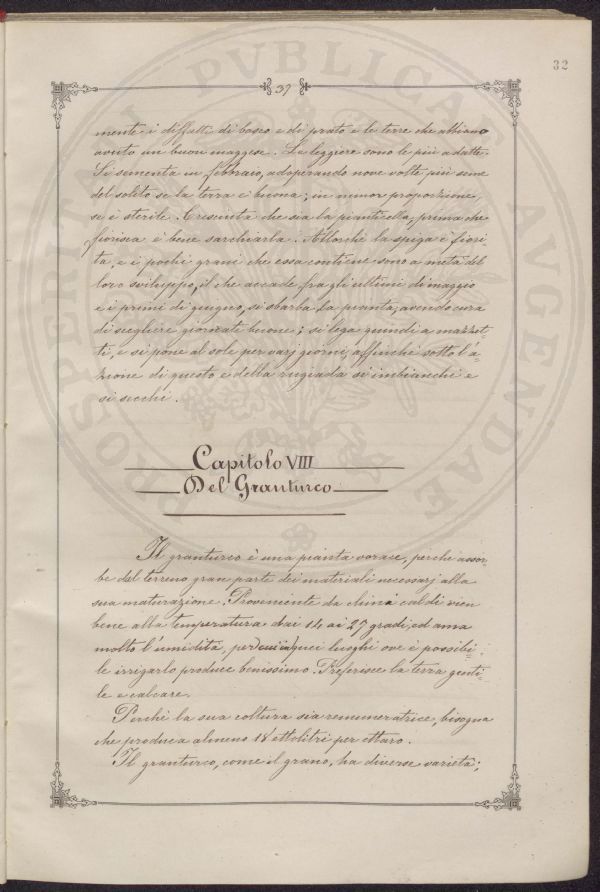 32
37
mente i diffatti di bosco e di prato e le terre che abbiano
avuto un buon maggese. Le leggiere sono le più adatte.
Si sementa in febbraio, adoperando nove volte più seme
del solito se la terra è buona; in minor proporzione,
se è sterile. Cresciuta che sia la pianticella, prima che
fiorisca è bene sarchiarla. Allorchè la spiga è fiori
ta, e i pochi grani che essa contiene sono a metà del
loro sviluppo, il che accade fra gli ultimi di maggio
e i primi di giugno, si sbarba la pianta, avendo cura
di scegliere giornate buone; si lega quindi a mazzet-
ti, e si pone al sole per varj giorni, affinchè sotto l'a-
zione di questo e della rugiada si imbianchi e
si secchi.
Capitolo VIII
Del Granturco
Il granturco è una pianta vorace, perchè assor-
be dal terreno gran parte dei materiali necessarj alla
sua maturazione. Proveniente da climi caldi vien
bene alla temperatura dai 14 ai 27 gradi, ed ama
molto l'umidità, per cui in quei luoghi ove è possibi-
le irrigarlo produce benissimo. Preferisce la terra genti-
le e calcare.
Perchè la sua coltura sia remuneratrice, bisogna
che produca almeno 18 ettolitri per ettaro.
Il granturco, come il grano, ha diverse varietà;
PROSPERITATI PVBLICAE AVGENDAE